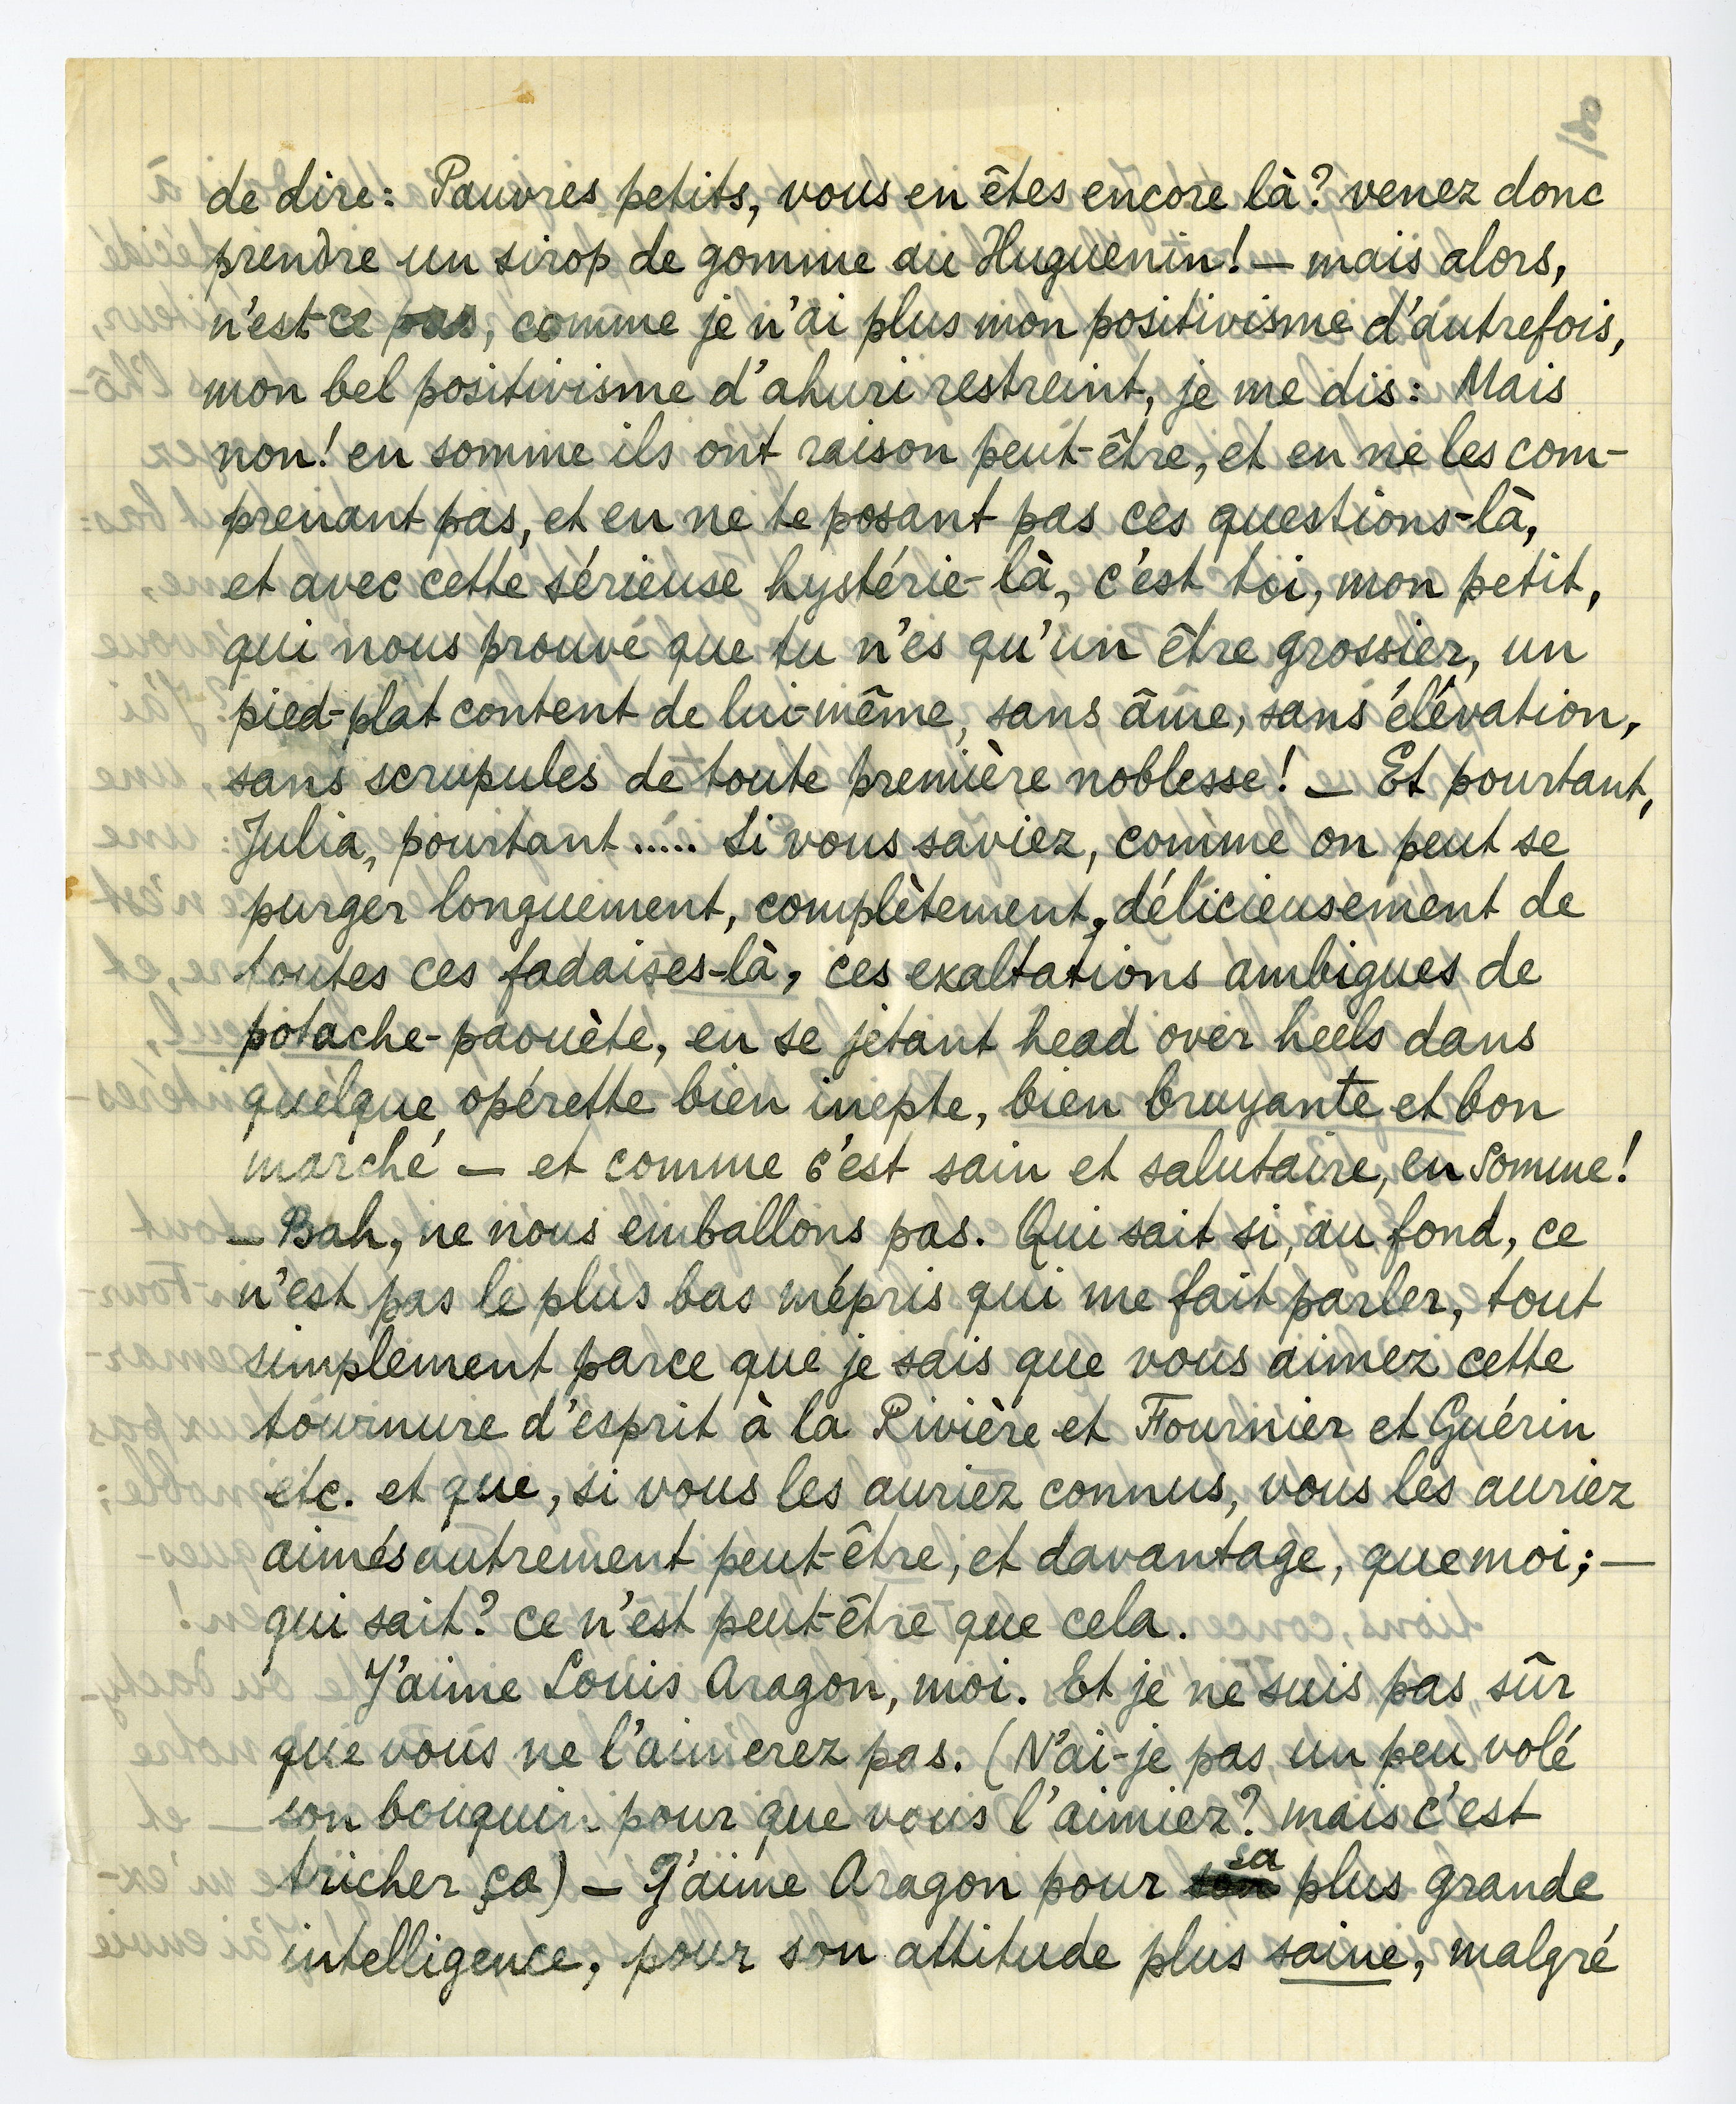 de dire: Pauvres petits, vous en êtes encore là? venez donc
prendre un sirop de gomme au Huguenin! — mais alors,
n'est-ce pas, comme je n'ai plus mon positivisme d'autrefois,
mon bel positivisme d'ahuri restreint, je me dis: Mais
non! en somme ils ont raison peut-être, et en ne les com-
prenant pas, et en ne te posant pas ces questions-là,
et avec cette sérieuse hystérie-là, c'est toi, mon petit,
qui nous prouve que tu n'es qu'un être grossier, un
pied-plat content de lui-même, sans âme, sans élévation,
sans scrupules de toute première noblesse! — Et pourtant,
Julia, pourtant ..... Si vous saviez, comme on peut se
purger longuement, complètement, délicieusement de
toutes ces fadaises-là, ces exaltations ambigues de
potache-paouète, en se jetant head over heels dans
quelque opérette bien inepte, bien bruyante et bon
marché — et comme c'est sain et salutaire, en somme!
— Bah, ne nous emballons pas. Qui sait si, au fond, ce
n'est pas le plus bas mépris qui me fait parler, tout
simplement parce que je sais que vous aimez cette
tournure d'esprit à la Rivière et Fournier et Guérin
etc. et que, si vous les auriez connus, vous les auriez
aimés autrement peut-être, et davantage, que moi; —
qui sait? ce n'est peut-être que cela.
J'aime Louis Aragon, moi. Et je ne suis pas sûr
que vous ne l'aimerez pas. (N'ai-je pas un peu volé
son bouquin pour que vous l'aimiez? mais c'est
tricher ça) — J'aime Aragon pour sa plus grande
intelligence, pour son attitude plus saine, malgré